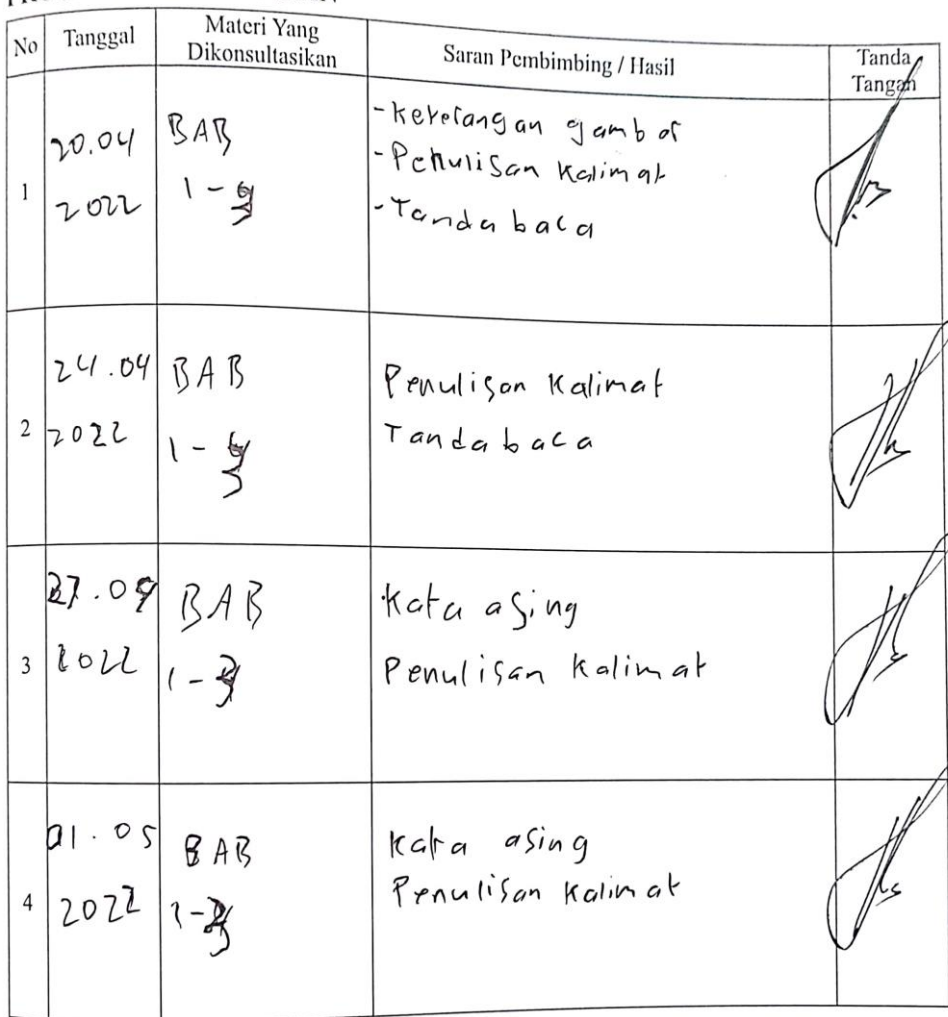 No
Tanggal
Materi Yang
Dikonsultasikan
Saran Pembimbing / Hasil
Tanda
Tangan
1
20.04
2022
BAB
1 -
- keterangan gambar
- Penulisan kalimat
- Tanda baca
2
24.04
2022
BAB
1 -
Penulisan kalimat
Tanda baca
3
27.04
2022
BAB
1 -
Kata asing
Penulisan kalimat
4
01.05
2022
BAB
1 -
Kata asing
Penulisan kalimat